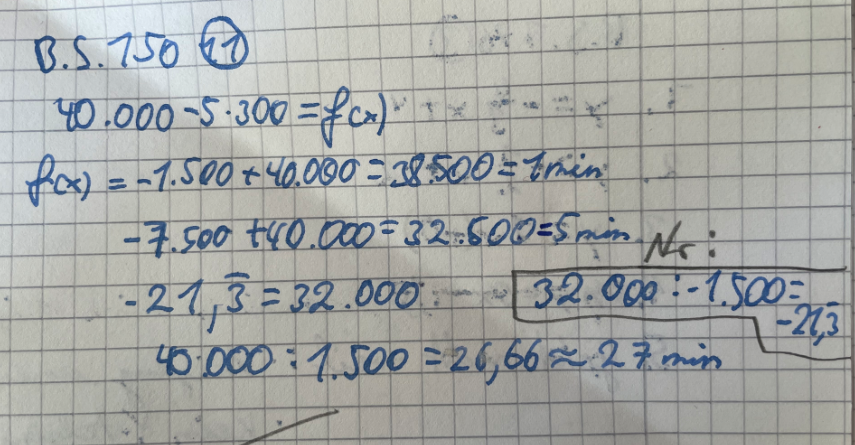 B.S.150 11
40.000-5·300=f(x)
f(x) = -1.500+40.000=38.500=1min
-7.500 +40.000=32.500=5min
Nr:
-21,3̅ = 32.000
32.000:-1.500=
-21,3̅
40.000:1.500=26,66≈27 min